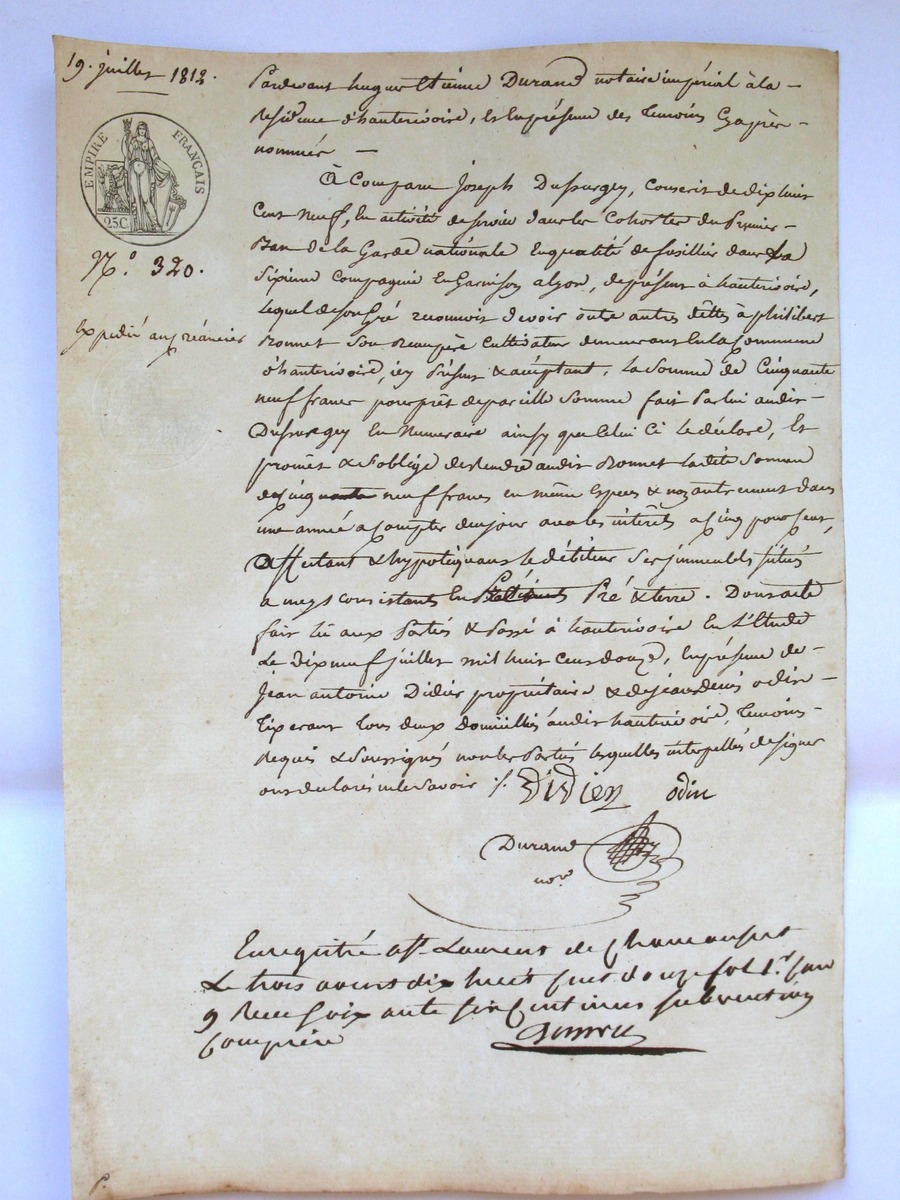 19. juillet 1812.
EMPIRE FRANÇAIS
25C
N.o 320.
Expedié au créancier
Pardevant hugue Etienne Durand notaire impérial à la
Residence d'hauterivoire, et En présence des Temoins Cy après
nommés
à Comparu Joseph Dussurgey, Conscrit de dix huit
Cent Neuf, En activité de service dans les Cohortes du Premier
Ban de la Garde nationale En qualité de fusillier dans La
Sixieme Compagnie En Garnison a lyon, de présent à hauterivoire,
lequel de son Gré reconnoit devoir outre autres dettes à philibert
Bonnet Son Beaupère Cultivateur demeurant En la Commune
d'hauterivoire, icy Présent & acceptant, la Somme de Cinquante
neuf francs pour prêt de pareille Somme fait Par lui audit
Dussurgey En Numeraire ainsy que Celui Ci le déclare, Et
promet & S'oblige de Rendre audit Bonnet ladite Somme
de Cinquante neuf francs en même Especes & non autrement dans
une année a Compter de ce jour avec les intérêts a Cinq pour Cent,
Affectant & hypotéquant le débiteur Ses immeubles Situés
a meys consistants En Pré & terre. Dont acte
fait lu aux Parties & Passé à hauterivoire En L'Etude
Le dix neuf juillet mil huit Cent douze, En présence de
Jean antoine Didier propriétaire & de jean denis odin
Tixerant tous deux Domiciliés audit hauterivoire, Temoins
Requis & Soussignés non les Parties lesquelles interpellées de signer
ont declaré ne le Savoir
Didier odin
Durand
no.re
Enregistré a St Laurent de Chamousset
Le trois aoust dix huit Cent douze fol 1.r Case
9 Reçu Soixante six Centimes subvention
Comprise